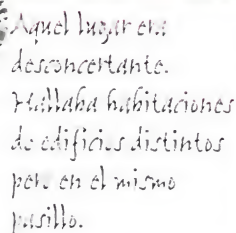 Aquel lugar era
desconcertante.
Hallaba habitaciones
de edificios distintos
pero en el mismo
pasillo.